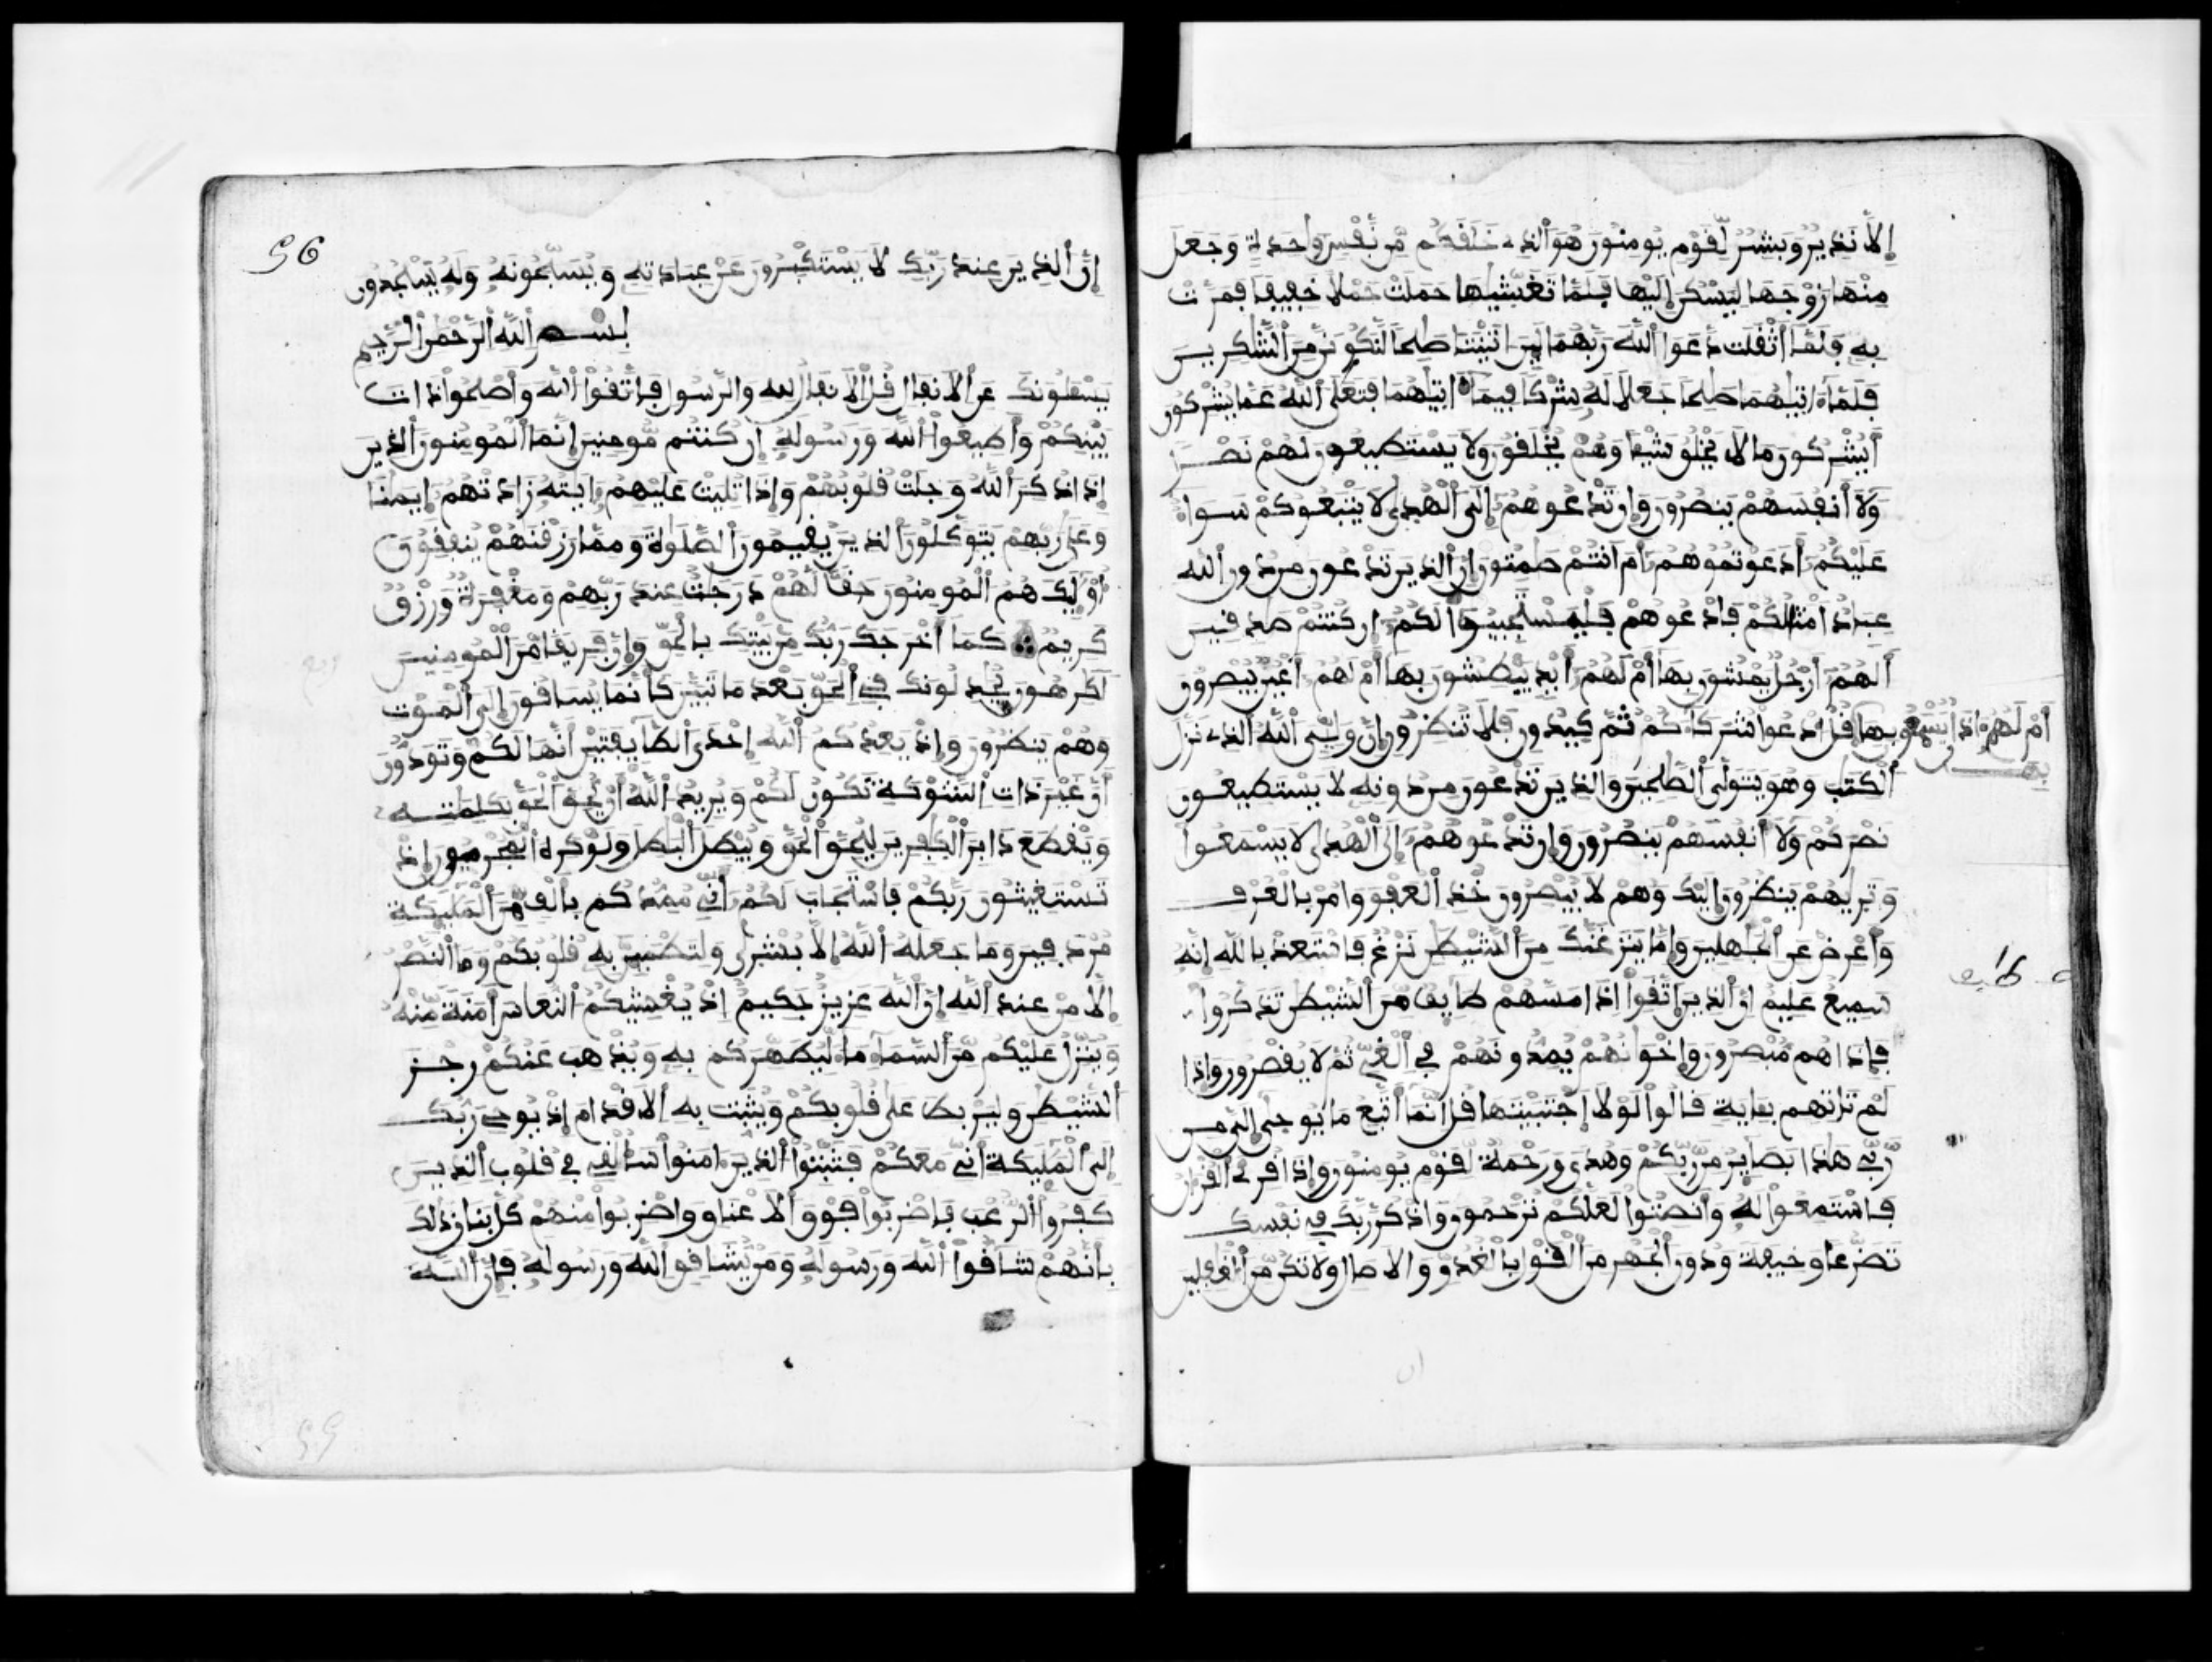 إلا نذير وبشير لقوم يومنون هو الذي خلقكم من نفس وحدة وجعل
منها زوجها ليسكن إليها فلما تغشيها حملت حملا خفيفا فمرت
به فلما أثقلت دعوا الله ربهما لين اتيتنا صلحا لنكونن من الشكرين
فلما اتيهما صلحا جعلا له شركا فيما اتيهما فتعلى الله عما يشركون
أيشركون ما لا يخلق شيئا وهم يخلقون ولا يستطيعون لهم نصرا
ولا أنفسهم ينصرون وإن تدعوهم إلى الهدى لا يتبعوكم سواء
عليكم أدعوتموهم أم أنتم صمتون إن الذين تدعون من دون الله
عباد امثالكم فادعوهم فليستجيبوا لكم إن كنتم صدقين
ألهم أرجل يمشون بها أم لهم أيد يبطشون بها أم لهم أعين يبصرون
أم لهم اذان يسمعون بها قل ادعوا شركاكم ثم كيدون فلا تنظرون إن وليي الله الذي نزل
بها
الكتب وهو يتولى الصلحين والذين تدعون من دونه لا يستطيعون
نصركم ولا أنفسهم ينصرون وإن تدعوهم إلى الهدى لا يسمعوا
وتريهم ينظرون إليك وهم لا يبصرون خذ العفو وامر بالعرف
وأعرض عن الجهلين وإما ينزغنك من الشيطن نزغ فاستعذ بالله إنه
سميع عليم إن الذين اتقوا إذا مسهم طايف من الشيطن تذكروا
فإذا هم مبصرون وإخوانهم يمدونهم في الغي ثم لا يقصرون وإذا
لم تاتهم بئاية قالوا لولا اجتبيتها قل إنما أتبع ما يوحى إلي من
ربي هذا بصاير من ربكم وهدى ورحمة لقوم يومنون وإذا قرئ القران
فاستمعوا له وأنصتوا لعلكم ترحمون واذكر ربك في نفسك
تضرعا وخيفة ودون الجهر من القول بالغدو والاصال ولا تكن من الغفلين
56
إن الذين عند ربك لا يستكبرون عن عبادته ويسبحونه وله يسجدون
بسم الله الرحمن الرحيم
يسئلونك عن الانفال قل الانفال لله والرسول فاتقوا الله وأصلحوا ذات
بينكم وأطيعوا الله ورسوله إن كنتم مومنين إنما المومنون الذين
إذا ذكر الله وجلت قلوبهم وإذا تليت عليهم ءايته زادتهم إيمنا
وعلى ربهم يتوكلون الذين يقيمون الصلوة ومما رزقنهم ينفقون
أوليك هم المومنون حقا لهم درجت عند ربهم ومغفرة ورزق
كريم كما أخرجك ربك من بيتك بالحق وإن فريقا من المومنين
لكرهون يجدلونك في الحق بعد ما تبين كأنما يساقون إلى الموت
وهم ينظرون وإذ يعدكم الله إحدى الطايفتين أنها لكم وتودون
أن غير ذات الشوكة تكون لكم ويريد الله أن يحق الحق بكلمته
ويقطع دابر الكفرين ليحق الحق ويبطل البطل ولو كره المجرمون إذ
تستغيثون ربكم فاستجاب لكم أني ممدكم بألف من المليكة
مردفين وما جعله الله إلا بشرى ولتطمين به قلوبكم وما النصر
إلا من عند الله إن الله عزيز حكيم إذ يغشيكم النعاس أمنة منه
وينزل عليكم من السماء ماء ليطهركم به ويذهب عنكم رجز
الشيطن وليربط على قلوبكم ويثبت به الاقدام إذ يوحي ربك
إلى المليكة أني معكم فثبتوا الذين امنوا سألقي في قلوب الذين
كفروا الرعب فاضربوا فوق الاعناق واضربوا منهم كل بنان ذلك
بأنهم شاقوا الله ورسوله ومن يشاقق الله ورسوله فإن الله